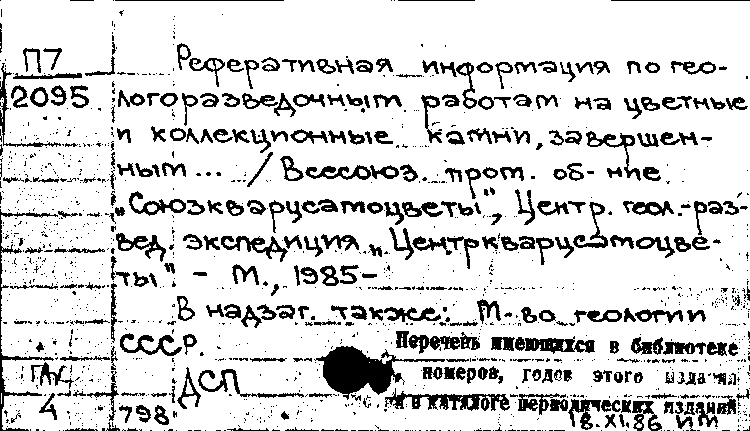 П7
2095
Реферативная информация по гео-
логоразведочным работам на цветные
и коллекционные камни, завершен-
ным... / Всесоюз. пром. об-ние
„Союзкварцсамоцветы", Центр. геол.-раз-
вед. экспедиция „Центркварцсамоцве-
ты". - М., 1985-
В надзаг. также: М-во геологии
СССР.
ДСП
4
798
Перечень имеющихся в библиотеке
номеров, годов этого издания
в каталоге периодических изданий
18.XI.86 ИМ